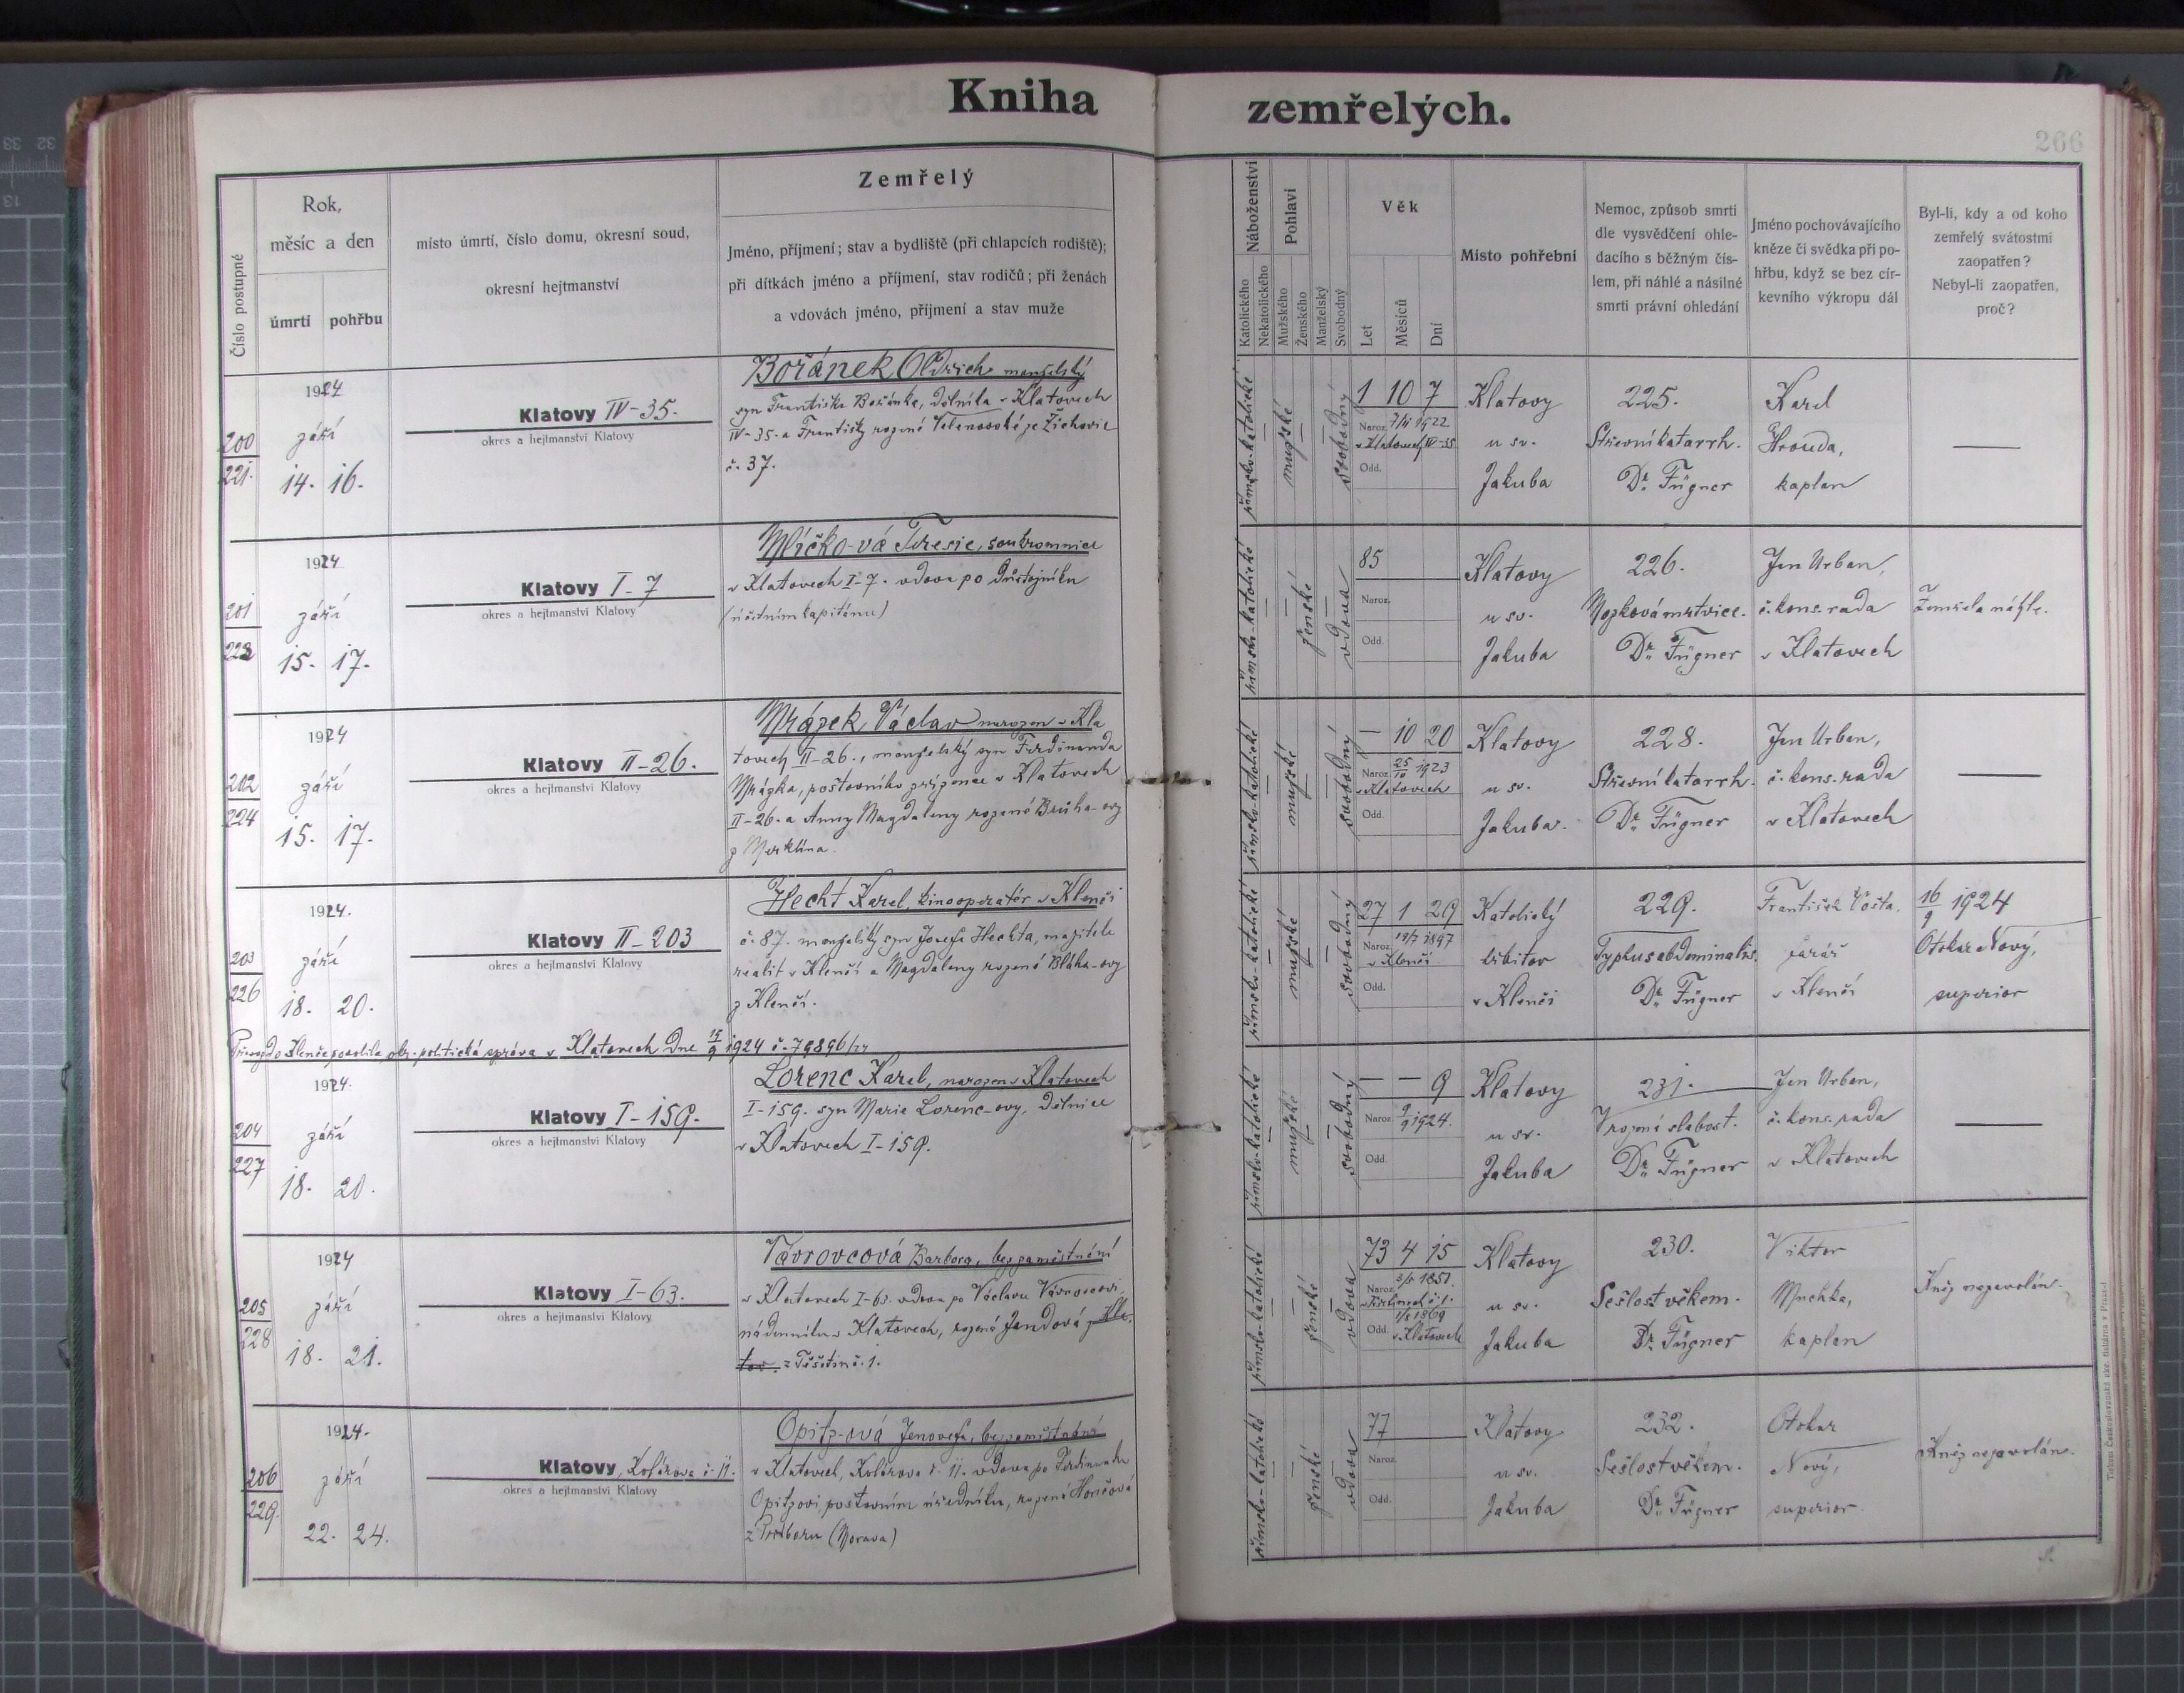 Kniha zemřelých.
266
Číslo postupné
Rok,
měsíc a den
úmrtí
pohřbu
místo úmrtí, číslo domu, okresní soud,
okresní hejtmanství
Zemřelý
Jméno, příjmení; stav a bydliště (při chlapcích rodiště);
při dítkách jméno a příjmení, stav rodičů; při ženách
a vdovách jméno, příjmení a stav muže
Náboženství
Katolického
Nekatolického
Pohlaví
Mužského
Ženského
Manželský
Svobodný
Věk
Let
Měsíců
Dní
Místo pohřební
Nemoc, způsob smrti
dle vysvědčení ohle-
dacího s běžným čís-
lem, při náhlé a násilné
smrti právní ohledání
Jméno pochovávajícího
kněze či svědka při po-
hřbu, když se bez cír-
kevního výkropu dál
Byl-li, kdy a od koho
zemřelý svátostmi
zaopatřen?
Nebyl-li zaopatřen,
proč?
200
221.
1924
září
14. 16.
Klatovy IV-35.
okres a hejtmanství Klatovy
Bořánek Oldřich manželský
syn Františka Bořánka, dělníka v Klatovech
IV-35. a Františky rozené Velenovské ze Žichovic
č. 37.
římsko-katolické
mužské
svobodný
1 10 7
Naroz. 1922
v Klatovech IV-35
Odd.
Klatovy
u sv.
Jakuba
225.
Střevní katarrh.
Dr. Fügner
Karel
Hrouda,
kaplan
—
201
223
1924
září
15. 17.
Klatovy I-7
okres a hejtmanství Klatovy
Mlíčko-vá Teresie, soukromnice
v Klatovech I-7. vdova po důstojníku
(účetním kapitánu)
římsko-katolické
ženské
vdova
85
Naroz.
Odd.
Klatovy
u sv.
Jakuba
226.
Mozková mrtvice.
Dr. Fügner
Jan Urban,
č. kons. rada
v Klatovech
Zemřela náhle.
202
224
1924
září
15. 17.
Klatovy II-26.
okres a hejtmanství Klatovy
Mrázek Václav narozen v Kla
tovech II-26., manželský syn Ferdinanda
Mrázka, poštovního zřízence v Klatovech
II-26. a Anny Magdaleny rozené Brůha-ovy
z Merklína.
římsko-katolické
mužské
svobodný
— 10 20
Naroz. 25/10 1923
v Klatovech
Odd.
Klatovy
u sv.
Jakuba.
228.
Střevní katarrh.
Dr. Fügner
Jan Urban,
č. kons. rada
v Klatovech
—
203
226
1924.
září
18. 20.
Klatovy II-203
okres a hejtmanství Klatovy
Hecht Karel, kinooperatér v Klenčí
č. 87. manželský syn Josefa Hechta, majitele
realit v Klenčí a Magdaleny rozené Bláha-ovy
z Klenčí.
římsko-katolické
mužské
svobodný
27 1 29
Naroz. 1897
v Klenčí
Odd.
Katolický
hřbitov
v Klenčí
229.
Typhus abdominalis.
Dr. Fügner
František
farář
v Klenčí
16/9 1924
Otokar Nový,
superior
Převoz do Klenče povolila okr. politická správa v Klatovech dne 19/9 1924 č. 79896/24
204
227
1924.
září
18. 20.
Klatovy I-159.
okres a hejtmanství Klatovy
Lorenc Karel, narozen v Klatovech
I-159. syn Marie Lorenc-ovy, dělnice
v Klatovech I-159.
římsko-katolické
mužské
svobodný
— — 9
Naroz. 9/9 1924.
Odd.
Klatovy
u sv.
Jakuba
231.
Vrozená slabost.
Dr. Fügner
Jan Urban,
č. kons. rada
v Klatovech
—
205
228
1924
září
18. 21.
Klatovy I-63.
okres a hejtmanství Klatovy
Vavrovcová Barbora, bez zaměstnání
v Klatovech I-63. vdova po Václavu Vavrovcovi,
nádenníku v Klatovech, rozená Jandová z Kla-
tov. z Těšetin č. 1.
římsko-katolické
ženské
vdova
73 4 15
Naroz. 3/5 1851.
1869
Odd. v Klatovech
Klatovy
u sv.
Jakuba
230.
Sešlost věkem.
Dr. Fügner
Viktor
Muchka,
kaplan
Kněz nezavolán.
206
229.
1924.
září
22. 24.
Klatovy, Kolárova č. 11.
okres a hejtmanství Klatovy
Opitz-ová Jenovefa, bez zaměstnání
v Klatovech, Kolárova č. 11. vdova po Ferdinandu
Opitzovi poštovním úředníku, rozená Horčová
z Příboru (Morava)
římsko-katolické
ženské
vdova
77
Naroz.
Odd.
Klatovy
u sv.
Jakuba
232.
Sešlost věkem.
Dr. Fügner
Otokar
Nový,
superior
Kněz nezavolán.